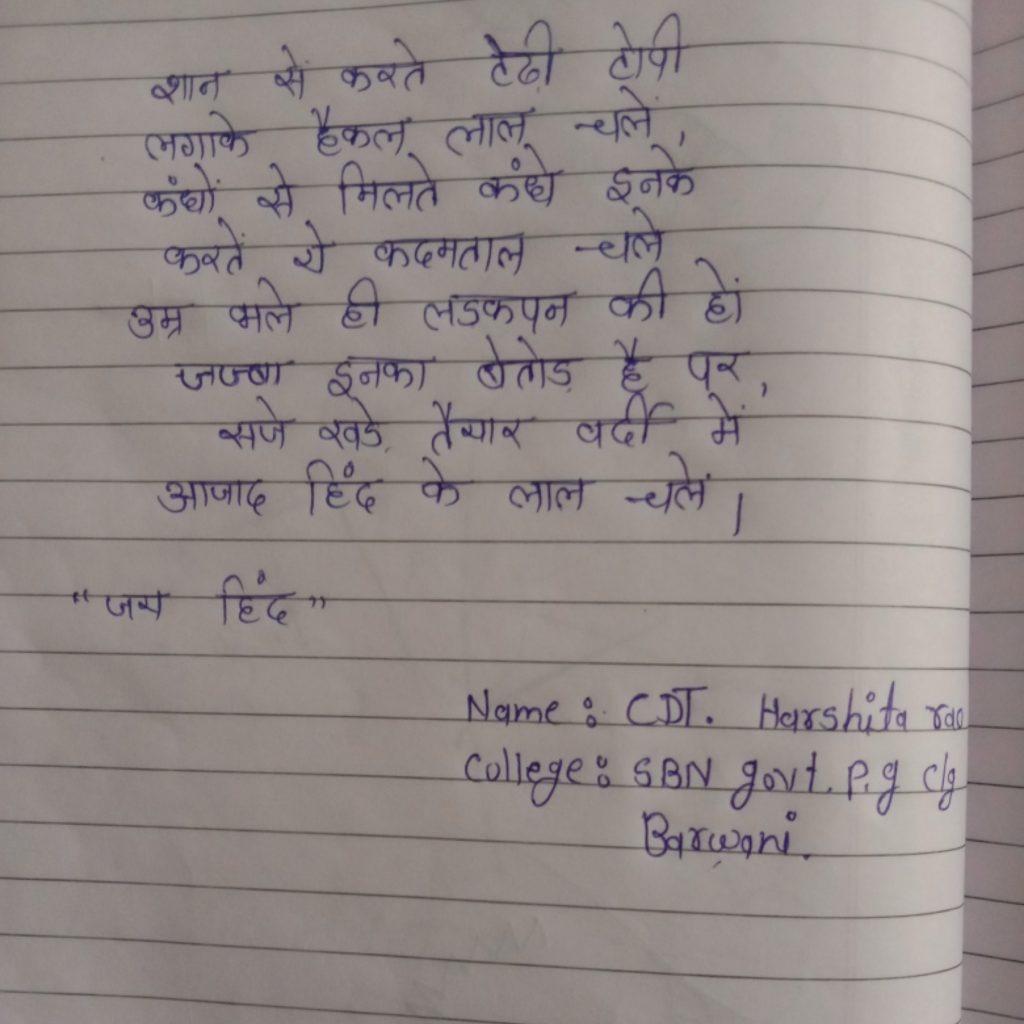 शान से करते टेढी टोपी
लगाके हैकल लाल चलें,
कंधों से मिलते कंधे इनके
करतें ये कदमताल चले
उम्र भले ही लडकपन की हों
जज्बा इनका बेतोड़ है पर,
सजे खडे़ तैयार वर्दी में
आजाद हिंद के लाल चलें।
"जय हिंद"
Name : CDT. Harshita rao
College : SBN govt. P.g clg
Barwani.